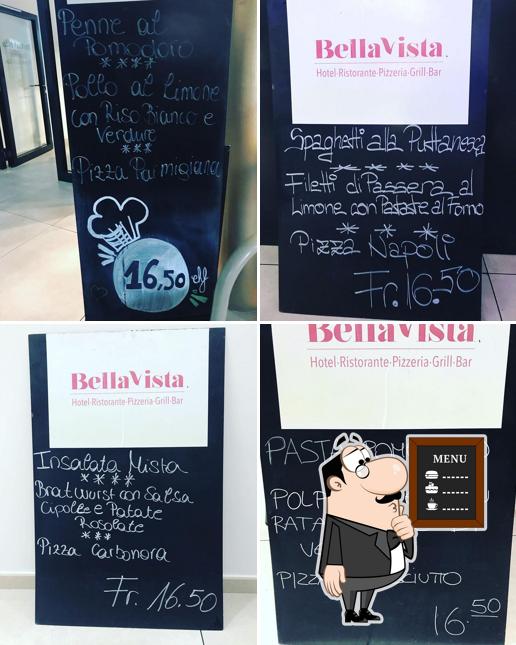 Penne al
Pomodoro
****
Pollo al Limone
con Riso Bianco e
Verdure
***
Pizza Parmigiana
16,50 chf
BellaVista.
Hotel·Ristorante·Pizzeria·Grill·Bar
Spaghetti alla Puttanesca
* * * *
Filetti di Passera al
Limone con Patate al Forno
* * *
Pizza Napoli
Fr. 16.50
BellaVista.
Hotel·Ristorante·Pizzeria·Grill·Bar
Insalata Mista
****
Bratwurst con Salsa
Cipolle e Patate
Rosolate
***
Pizza Carbonara
Fr. 16.50
BellaVista.
Hotel·Ristorante·Pizzeria·Grill·Bar
MENU
16.50